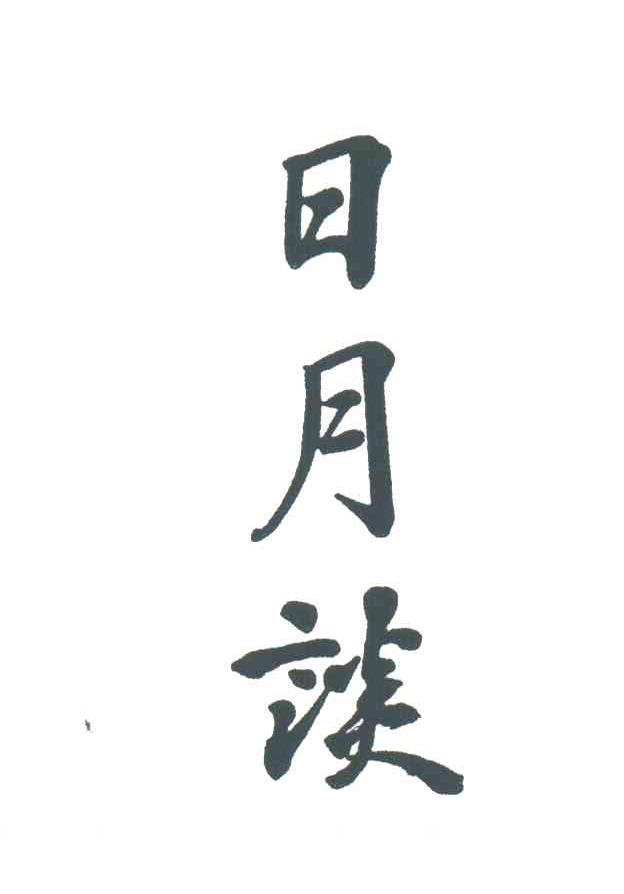 日月談